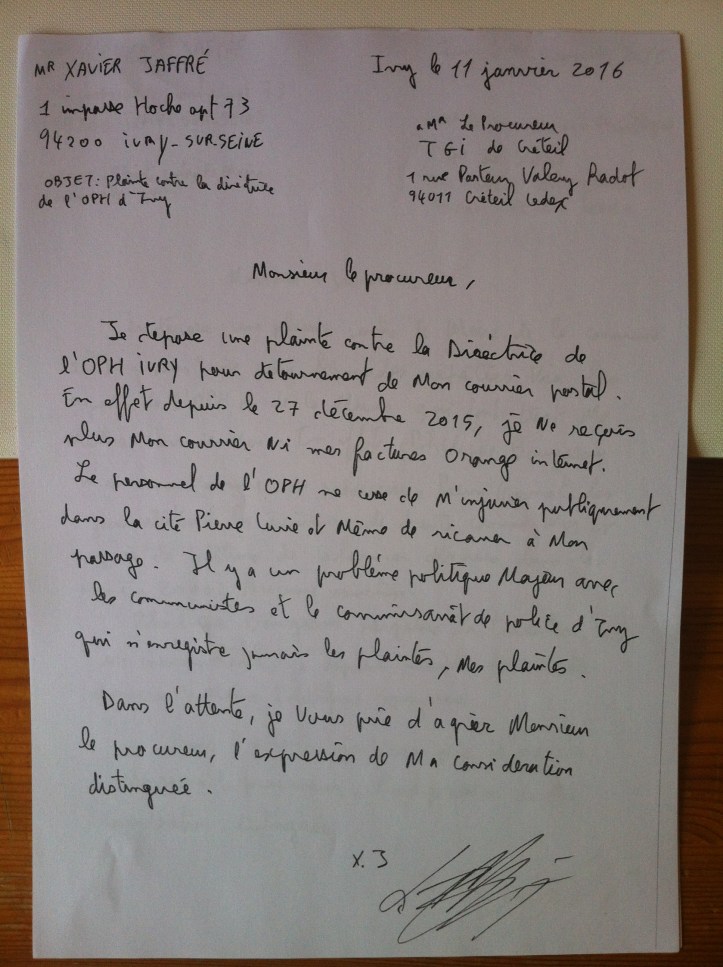 Mr XAVIER JAFFRÉ
1 impasse Hoche apt 73
94200 IVRY-SUR-SEINE
OBJET: Plainte contre la directrice
de l'OPH d'Ivry
Ivry le 11 janvier 2016
a Mr Le Procureur
TGI de Créteil
1 rue Pasteur Valery Radot
94011 Créteil Cedex
Monsieur le procureur,
Je depose une plainte contre la Diréctrice de
l'OPH IVRY pour detournement de Mon courrier postal.
En effet depuis le 27 décembre 2015, je Ne reçois
plus Mon courrier Ni mes factures Orange internet.
Le personnel de l'OPH ne cesse de M'injurier publiquement
dans la cité Pierre Curie et Même de ricaner à Mon
passage. Il y a un problème politique Majeur avec
les communistes et le commissariat de police d'Ivry
qui n'enregistre jamais les plaintes, Mes plaintes.
Dans l'attente, je Vous prie d'agréer Monsieur
le procureur, l'expression de Ma consideration
distinguée.
X. J